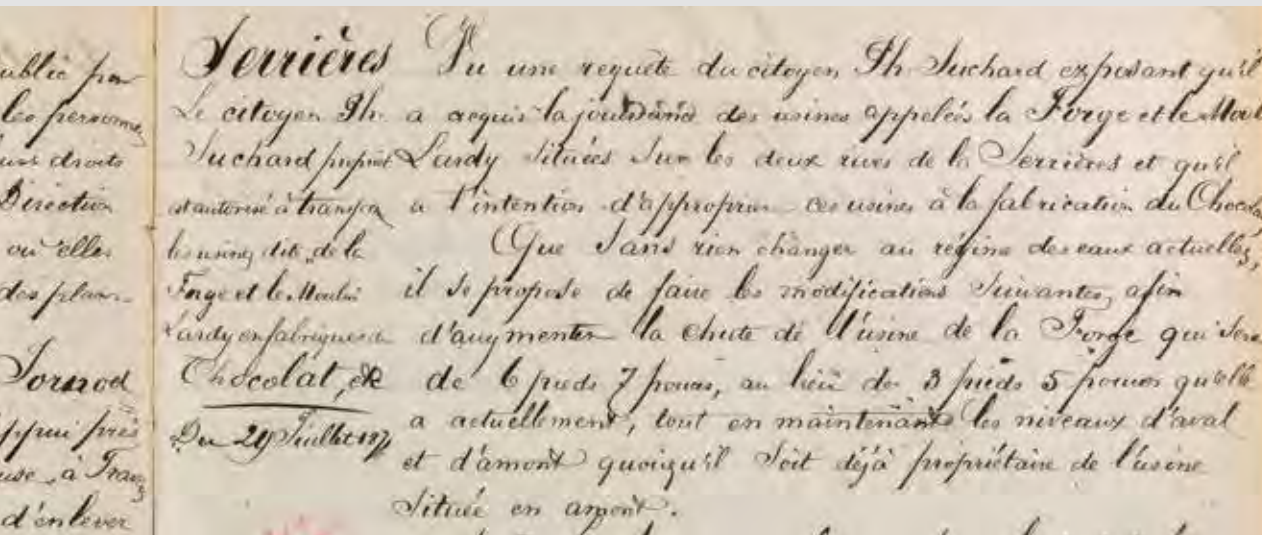 ublié par
les personnes
urs droits
Direction
où elles
des plans
Jornod
appui près
use, à Trav
d'enlever
Serrières
Le citoyen Ph.
Suchard propriét
est autorisé à transfor
les usines dite "de la
Forge et le Moulin
Lardy en fabriques de
Chocolat, &
Du 29 Juillet 187
Vu une requête du citoyen Ph. Suchard exposant qu'il
a acquis la jouissance des usines appelées la Forge et le Moul
Lardy situées sur les deux rives de la Serrières et qu'il
a l'intention d'approprier ces usines à la fabrication du Chocola
Que sans rien changer au régime des eaux actuelles,
il se propose de faire les modifications suivantes, afin
d'augmenter la chute de l'usine de la Forge qui sera
de 6 pieds 7 pouces, au lieu de 3 pieds 5 pouces qu'elle
a actuellement, tout en maintenant les niveaux d'aval
et d'amont quoiqu'il soit déjà propriétaire de l'usine
située en amont.